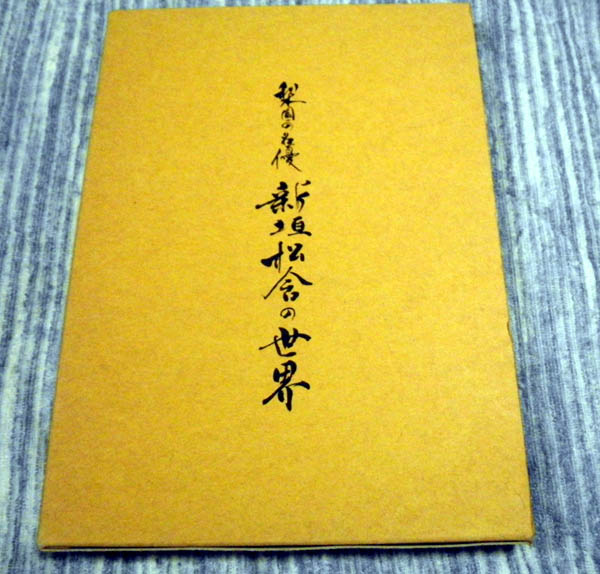 梨園の名優
新垣松含の世界